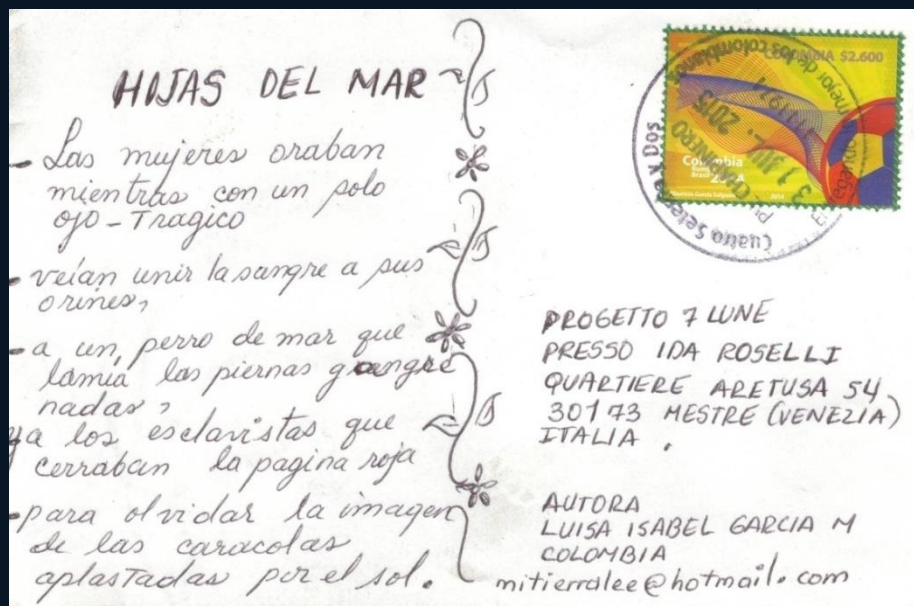 HIJAS DEL MAR
- Las mujeres oraban
mientras con un solo
ojo-Tragico
- veían unir la sangre a sus
orines,
- a un, perro de mar que
lamia las piernas gangre
nadas,
ya los esclavistas que
cerraban la pagina roja
- para olvidar la imagen
de las caracolas
aplastadas por el sol.
COLOMBIA $2.600
mejor de los colombianos
2015
Colombia
Brasil
Cuatro Setenta y Dos
PROGETTO 7 LUNE
PRESSO IDA ROSELLI
QUARTIERE ARETUSA 54
30173 MESTRE (VENEZIA)
ITALIA.
AUTORA
LUISA ISABEL GARCIA M
COLOMBIA
mitierralee@hotmail.com